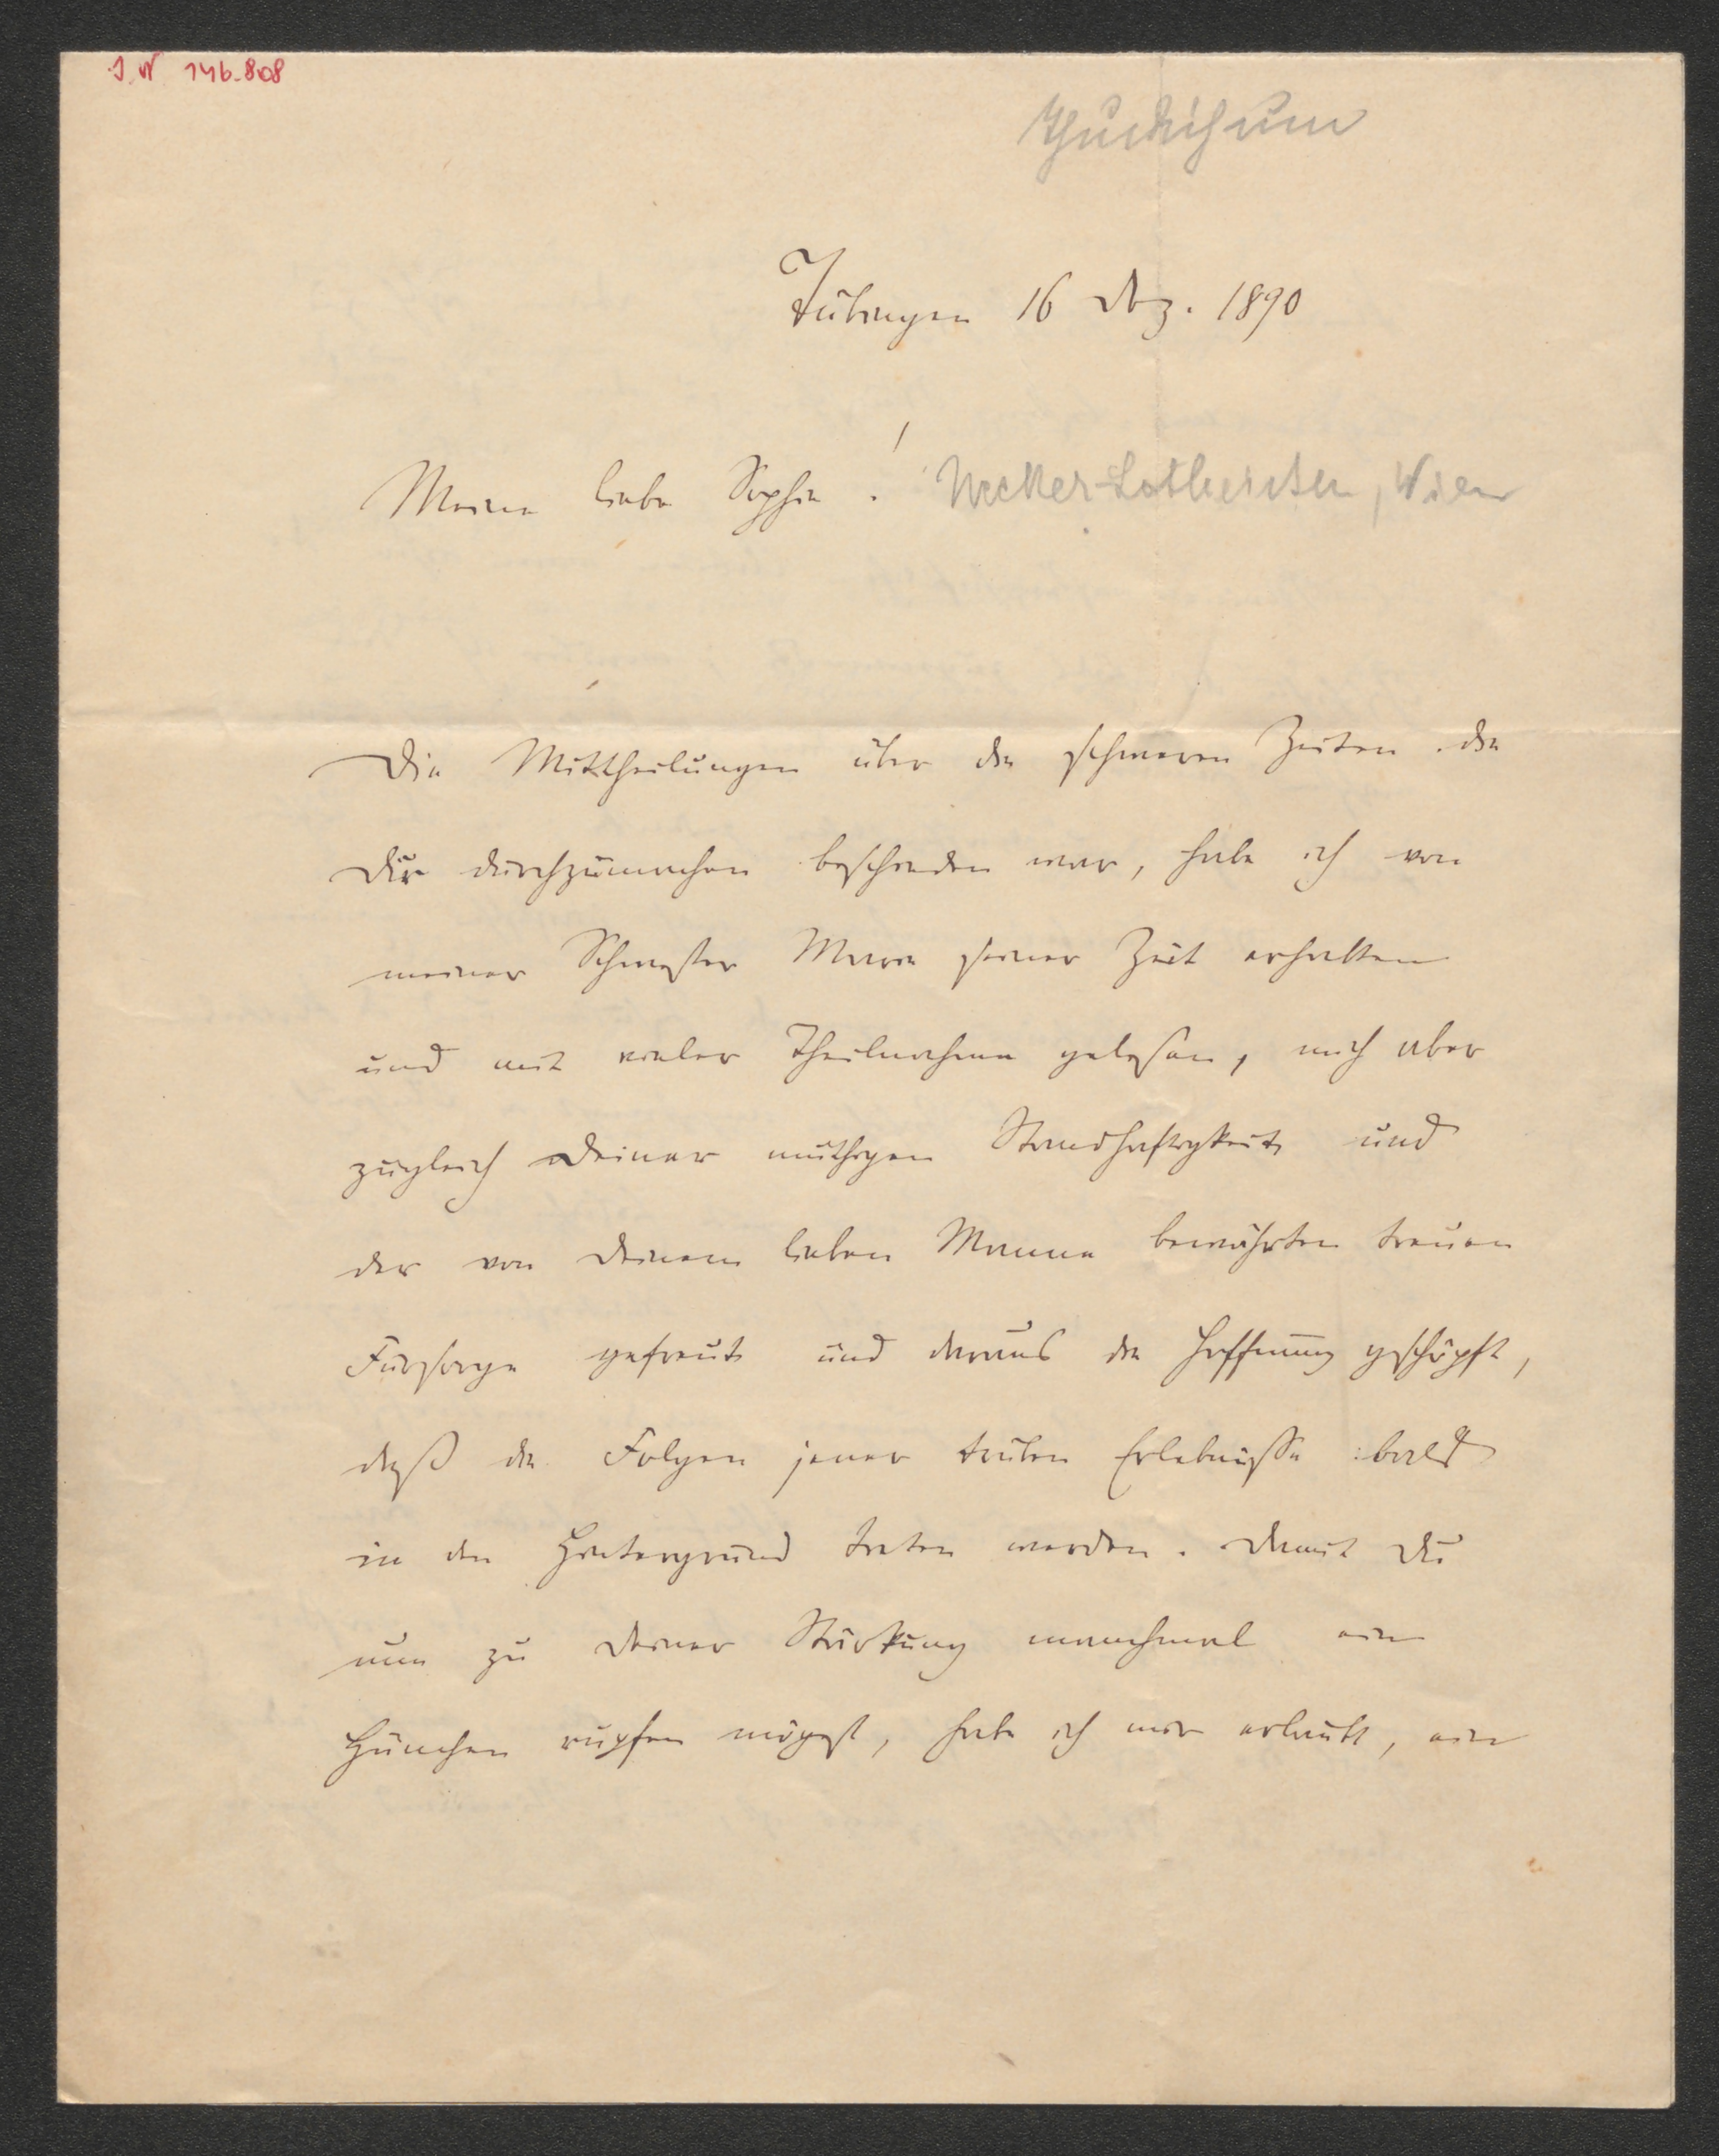 I.N 146.808
Thudichum
Tübingen 16 Dez. 1890
Meine liebe Sophie! Necker-Lotheisen, Wien
Die Mittheilungen über die schweren Zeiten die
Dir durchzumachen beschieden war, habe ich von
meiner Schwester Marie seiner Zeit erhalten
und mit vieler Theilnahme gelesen, mich aber
zugleich Deiner muthigen Standhaftigkeit und
der von Deinem lieben Manne bewährten treuen
Fürsorge gefreut und daraus die Hoffnung geschöpft,
daß die Folgen jener trüben Erlebnisse bald
in den Hintergrund treten werden. Damit Du
nun zu Deiner Stärkung manchmal ein
Hünchen rupfen mögest, habe ich mir erlaubt, ein